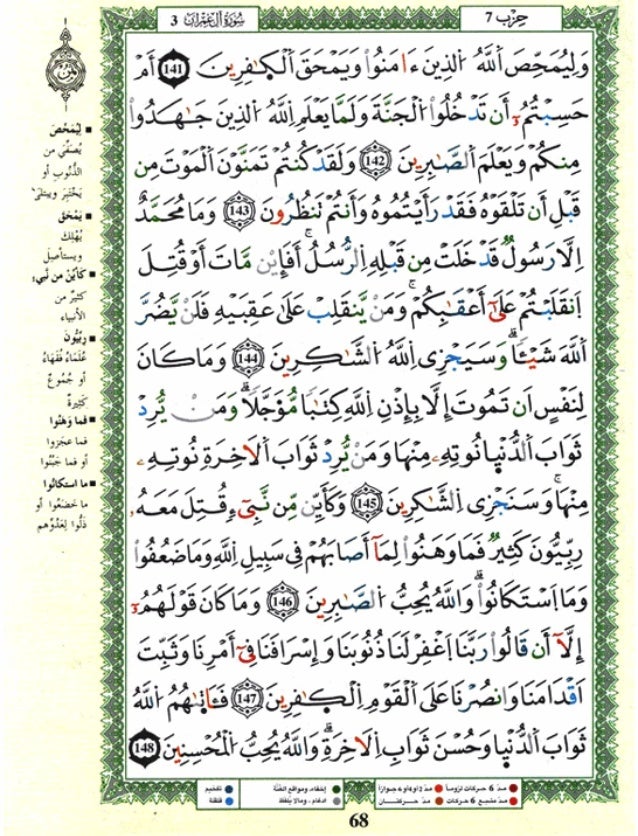 حِزْب 7
سُورَةُ آلِ عِمْرَان 3
وَلِيُمَحِّصَ اَللَّهُ اُلذِينَ ءَامَنُواْ وَيَمْحَقَ اَلْكَٰفِرِينَ 141 أَمْ
حَسِبْتُمُۥٓ أَن تَدْخُلُواْ اُلْجَنَّةَ وَلَمَّا يَعْلَمِ اِللَّهُ اُلذِينَ جَٰهَدُواْ
مِنكُمْ وَيَعْلَمَ اَلصَّٰبِرِينَ 142 وَلَقَدْ كُنتُمْ تَمَنَّوْنَ اَلْمَوْتَ مِن
قَبْلِ أَن تَلْقَوْهُ فَقَدْ رَأَيْتُمُوهُ وَأَنتُمْ تَنظُرُونَ 143 وَمَا مُحَمَّدٌ
اِلَّا رَسُولٌ قَدْ خَلَتْ مِن قَبْلِهِ اِلرُّسُلُ أَفَإِيْن مَّاتَ أَوْ قُتِلَ
اَنقَلَبْتُمْ عَلَىٰٓ أَعْقَٰبِكُمْ وَمَنْ يَّنقَلِبْ عَلَىٰ عَقِبَيْهِ فَلَنْ يَّضُرَّ
اَللَّهَ شَيْـًٔا وَسَيَجْزِى اِللَّهُ اُلشَّٰكِرِينَ 144 وَمَا كَانَ
لِنَفْسٍ اَن تَمُوتَ إِلَّا بِإِذْنِ اِللَّهِ كِتَٰبًا مُّؤَجَّلًا وَمَنْ يُّرِدْ
ثَوَابَ اَلدُّنْيَا نُوتِهِۦ مِنْهَا وَمَنْ يُّرِدْ ثَوَابَ اَلَاخِرَةِ نُوتِهِۦ
مِنْهَا وَسَنَجْزِى اِلشَّٰكِرِينَ 145 وَكَأَيِّن مِّن نَّبِيٓءٍ قُتِلَ مَعَهُۥ
رِبِّيُّونَ كَثِيرٌ فَمَا وَهَنُواْ لِمَآ أَصَابَهُمْ فِى سَبِيلِ اِللَّهِ وَمَا ضَعُفُواْ
وَمَا اَسْتَكَانُواْ وَاللَّهُ يُحِبُّ اُلصَّٰبِرِينَ 146 وَمَا كَانَ قَوْلَهُمُۥٓ
إِلَّآ أَن قَالُواْ رَبَّنَا اَغْفِرْ لَنَا ذُنُوبَنَا وَإِسْرَافَنَا فِىٓ أَمْرِنَا وَثَبِّتَ
اَقْدَامَنَا وَانصُرْنَا عَلَى اَلْقَوْمِ اِلْكَٰفِرِينَ 147 فَـَٔاتَىٰهُمُ اُللَّهُ
ثَوَابَ اَلدُّنْيَا وَحُسْنَ ثَوَابِ اِلَاخِرَةِ وَاللَّهُ يُحِبُّ اُلْمُحْسِنِينَ 148
■ لِيُمَحِّصَ
يُصَفِّيَ من
الذُّنُوبِ أو
يَخْتَبِرَ ويبتلي
■ يَمْحَقَ
يُهْلِكَ
ويستأصِلَ
■ كَأَيِّن مِن نَّبِيء
كثيرٌ من
الأنبياء
■ رِبِّيُّونَ
عُلَمَاءُ فُقَهَاءُ
أو جُمُوعٌ
كثيرةٌ
■ فَمَا وَهَنُوا
فما عجزوا
أو فما جَبُنُوا
■ مَا اسْتَكَانُوا
ما خضعُوا أو
ذَلُّوا لِعَدُوِّهم
مدّ 6 حركات لزوماً ● مدّ 2 أو 4 أو 6 جوازاً
مدّ مشبع 6 حركات ● مدّ حركتان
إخفاء، ومواقع الغُنَّة
ادغام، وما لا يُلفظ
تفخيم
قلقلة
68